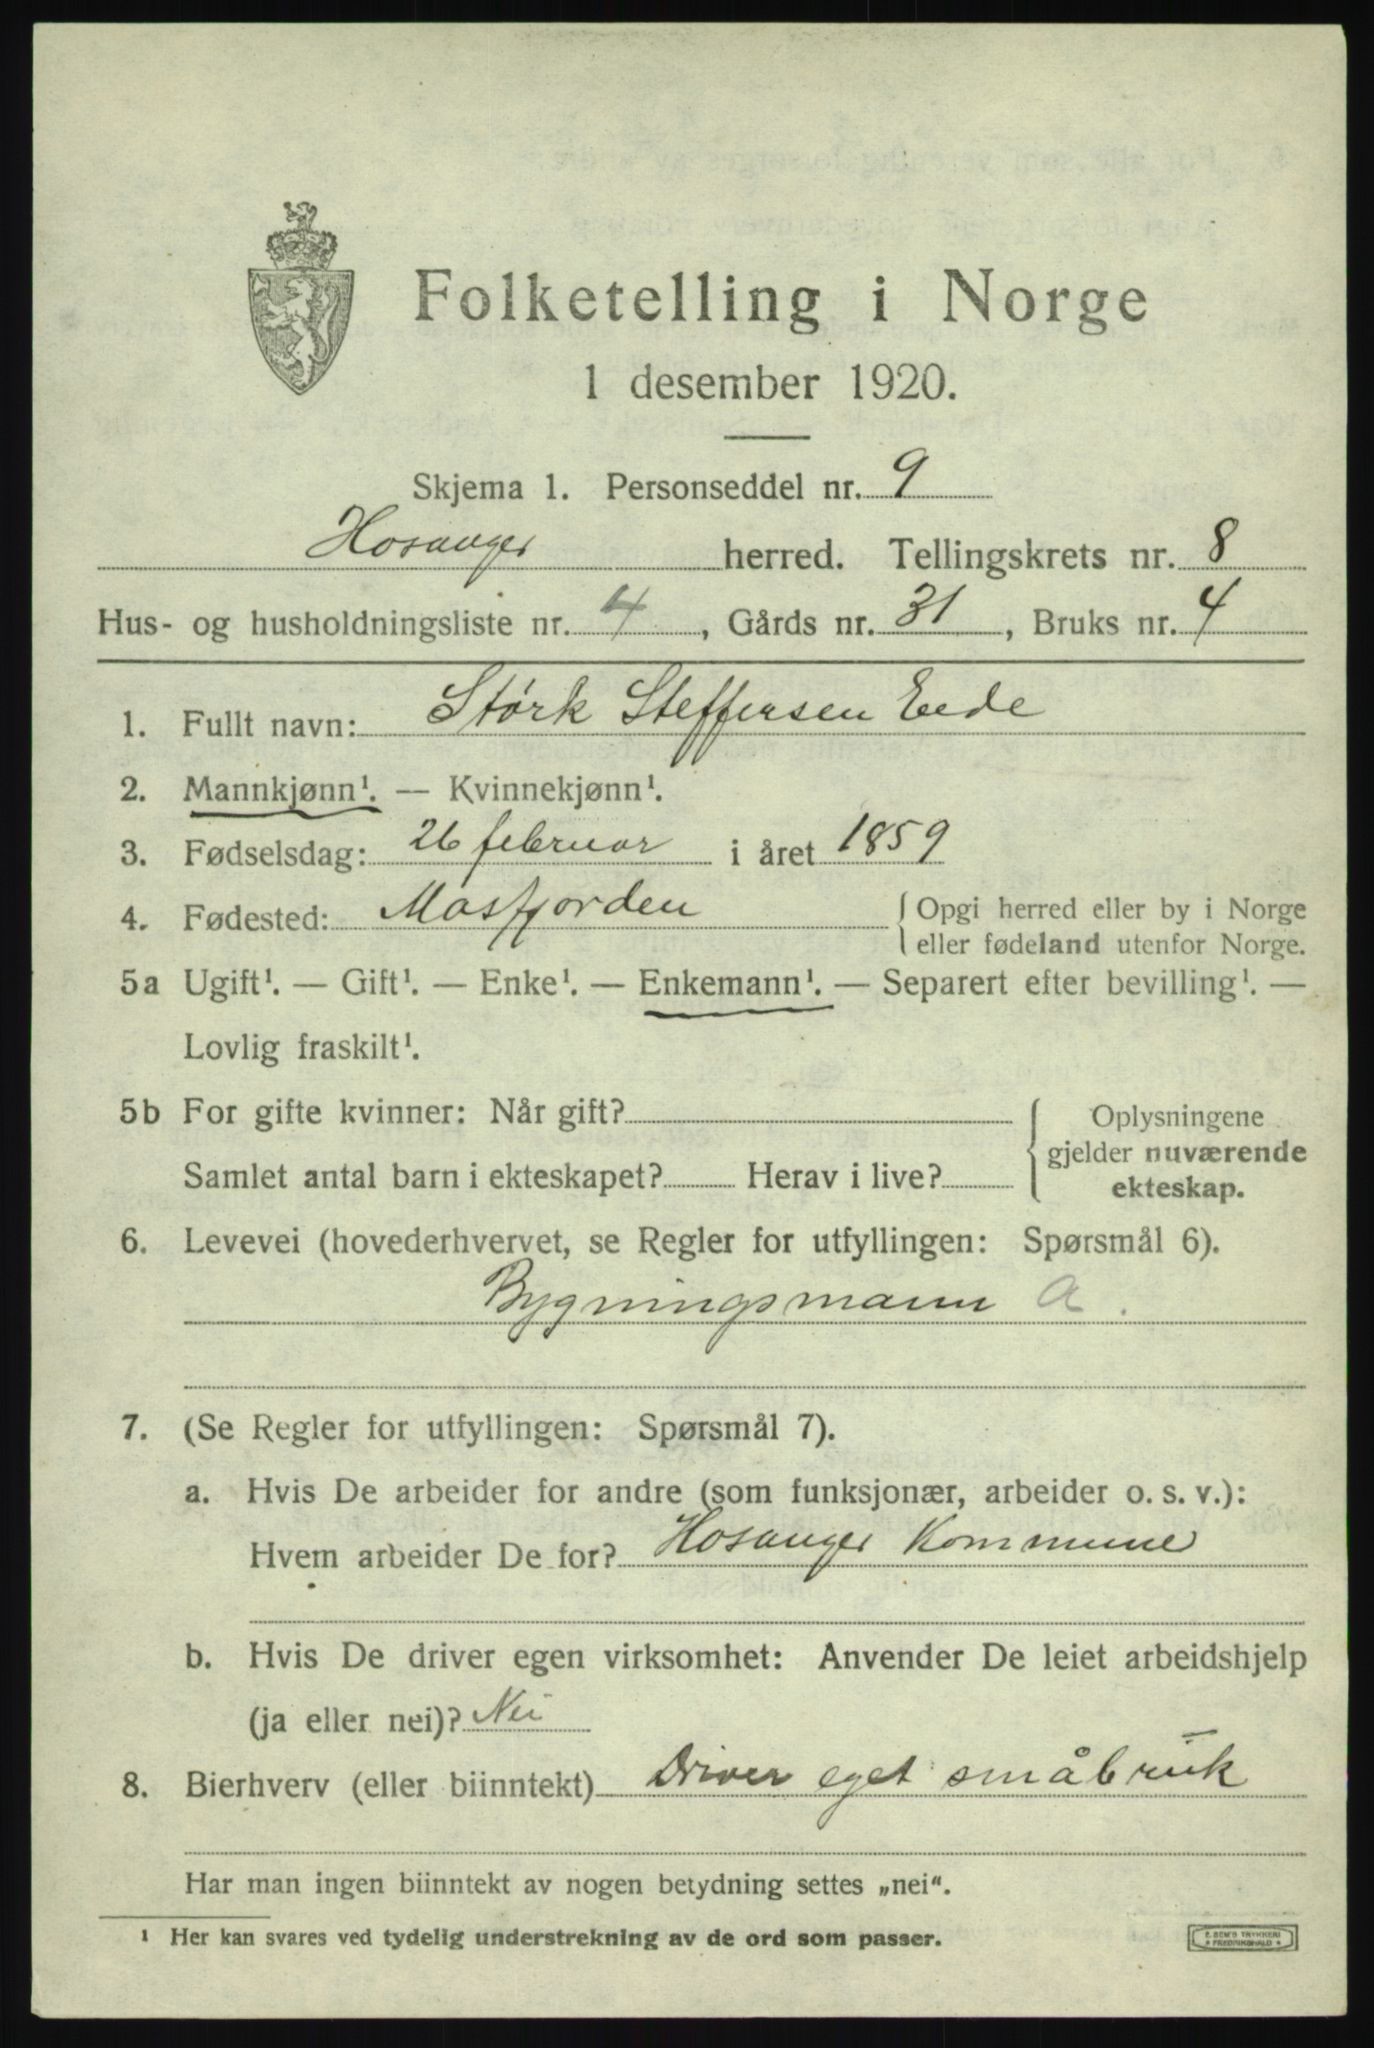 Folketelling i Norge
1 desember 1920.
Skjema 1. Personseddel nr. 9
Hosanger herred. Tellingskrets nr. 8
Hus- og husholdningsliste nr. 4, Gårds nr. 31, Bruks nr. 4
1. Fullt navn: Størk Steffensen Eide
2. Mannkjønn¹. — Kvinnekjønn¹.
3. Fødselsdag: 26 februar i året 1859
4. Fødested: Masfjorden { Opgi herred eller by i Norge
eller fødeland utenfor Norge.
5a Ugift¹. — Gift¹. — Enke¹. — Enkemann¹. — Separert efter bevilling¹. —
Lovlig fraskilt¹.
5b For gifte kvinner: Når gift? { Oplysningene
gjelder nuværende
Samlet antal barn i ekteskapet? Herav i live? ekteskap.
6. Levevei (hovederhvervet, se Regler for utfyllingen: Spørsmål 6).
Bygningsmann a.
7. (Se Regler for utfyllingen: Spørsmål 7).
a. Hvis De arbeider for andre (som funksjonær, arbeider o. s. v.):
Hvem arbeider De for? Hosanger Kommune
b. Hvis De driver egen virksomhet: Anvender De leiet arbeidshjelp
(ja eller nei)? Nei
8. Bierhverv (eller biinntekt) Driver eget småbruk
Har man ingen biinntekt av nogen betydning settes „nei".
¹ Her kan svares ved tydelig understrekning av de ord som passer.
E. SEM'S TRYKKERI
FREDRIKSHALD